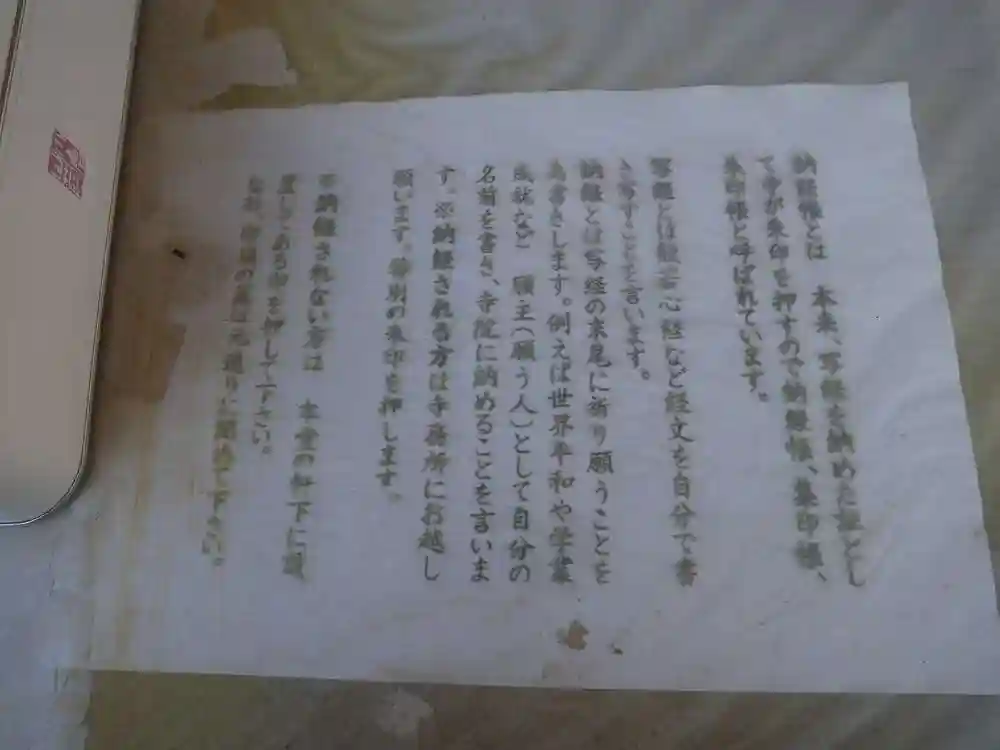 納経帳とは　本来、写経を納めた証とし
て寺が朱印を押すので納経帳、集印帳、
朱印帳と呼ばれています。
写経とは般若心経など経文を自分で書
き写すことを言います。
納経とは写経の末尾に祈り願うことを
為書きします。例えば世界平和や学業
成就など　願主（願う人）として自分の
名前を書き、寺院に納めることを言いま
す。※納経される方は寺務所にお越し
願います。特別の朱印を押します。
※納経されない方は　本堂の軒下に設
置してある印を押して下さい。
なお、の蓋は元通りに閉めて下さい。